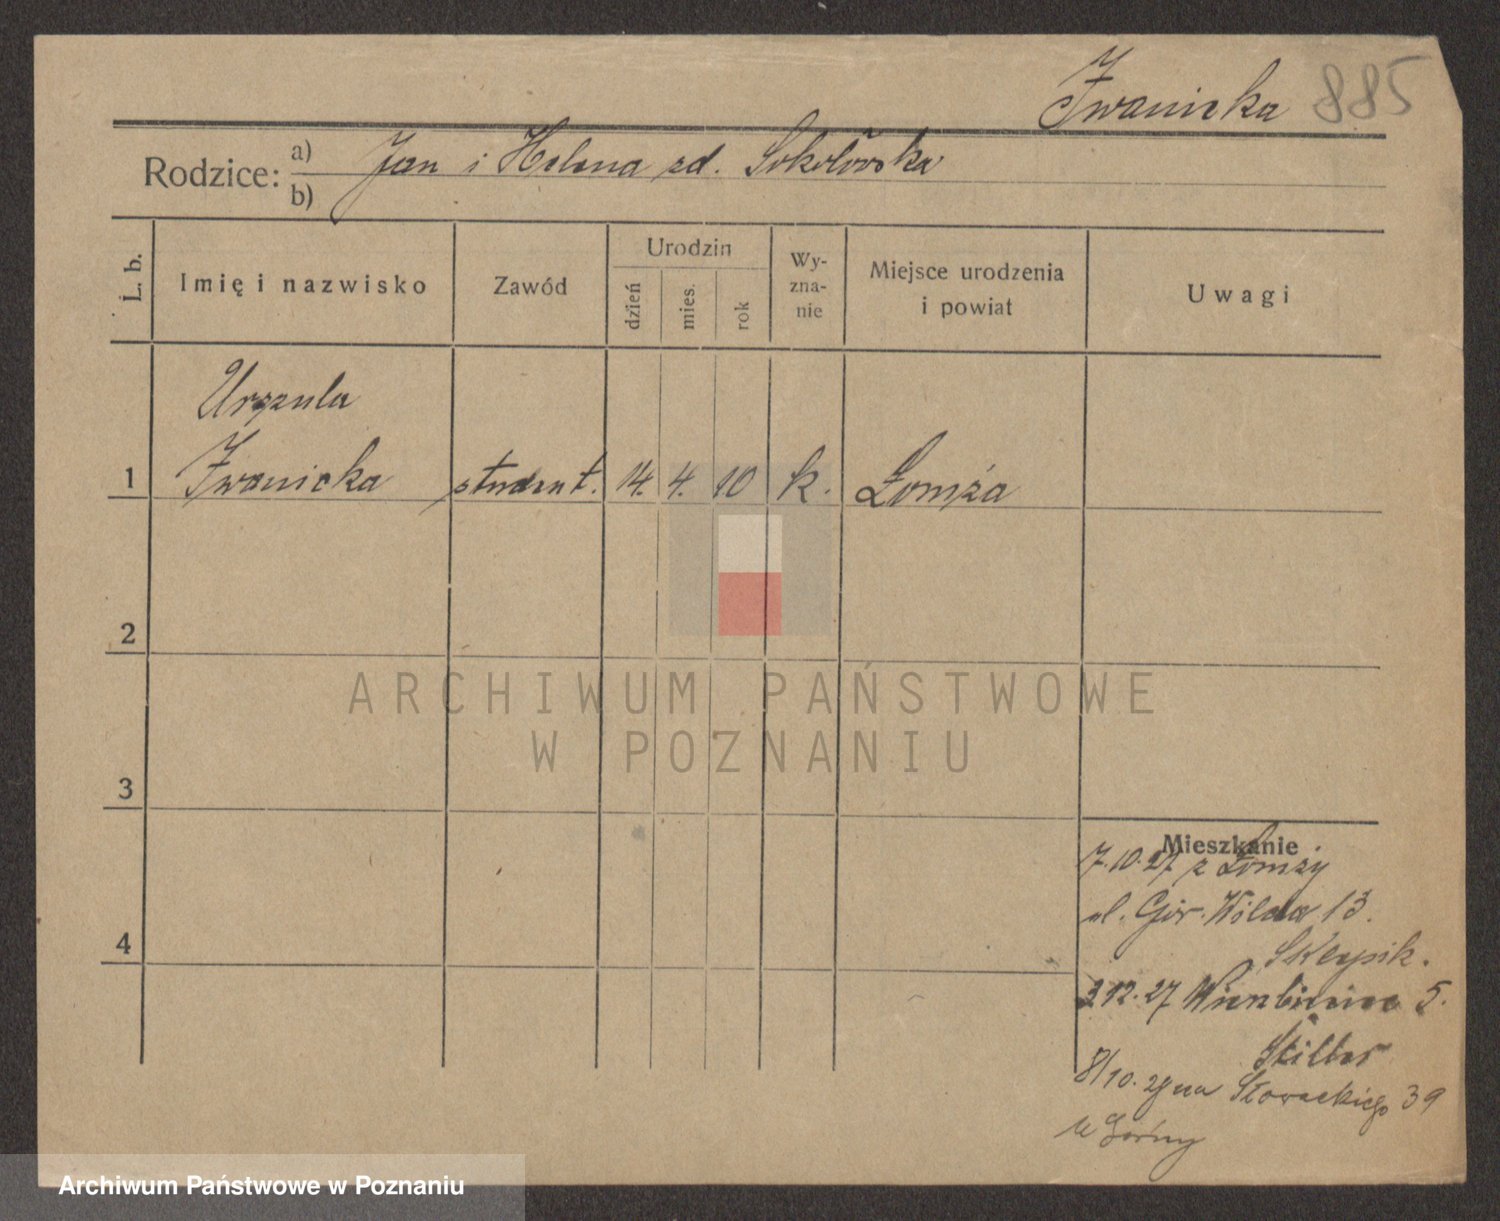 Iwanicka 885
Rodzice: a) Jan i Helena zd. Sokołowska
b)
L. b.
Imię i nazwisko
Zawód
Urodzin
dzień
mies.
rok
Wy-
zna-
nie
Miejsce urodzenia
i powiat
Uwagi
Urszula
1 Iwanicka student. 14. 4. 10 k. Łomża
2
ARCHIWUM PAŃSTWOWE
W POZNANIU
3
Mieszkanie
7.10.27 z Łomży
ul. Gór. Wilda 13.
4
3.12.27 5.
8/10. 29 na Słowackiego 39
Archiwum Państwowe w Poznaniu